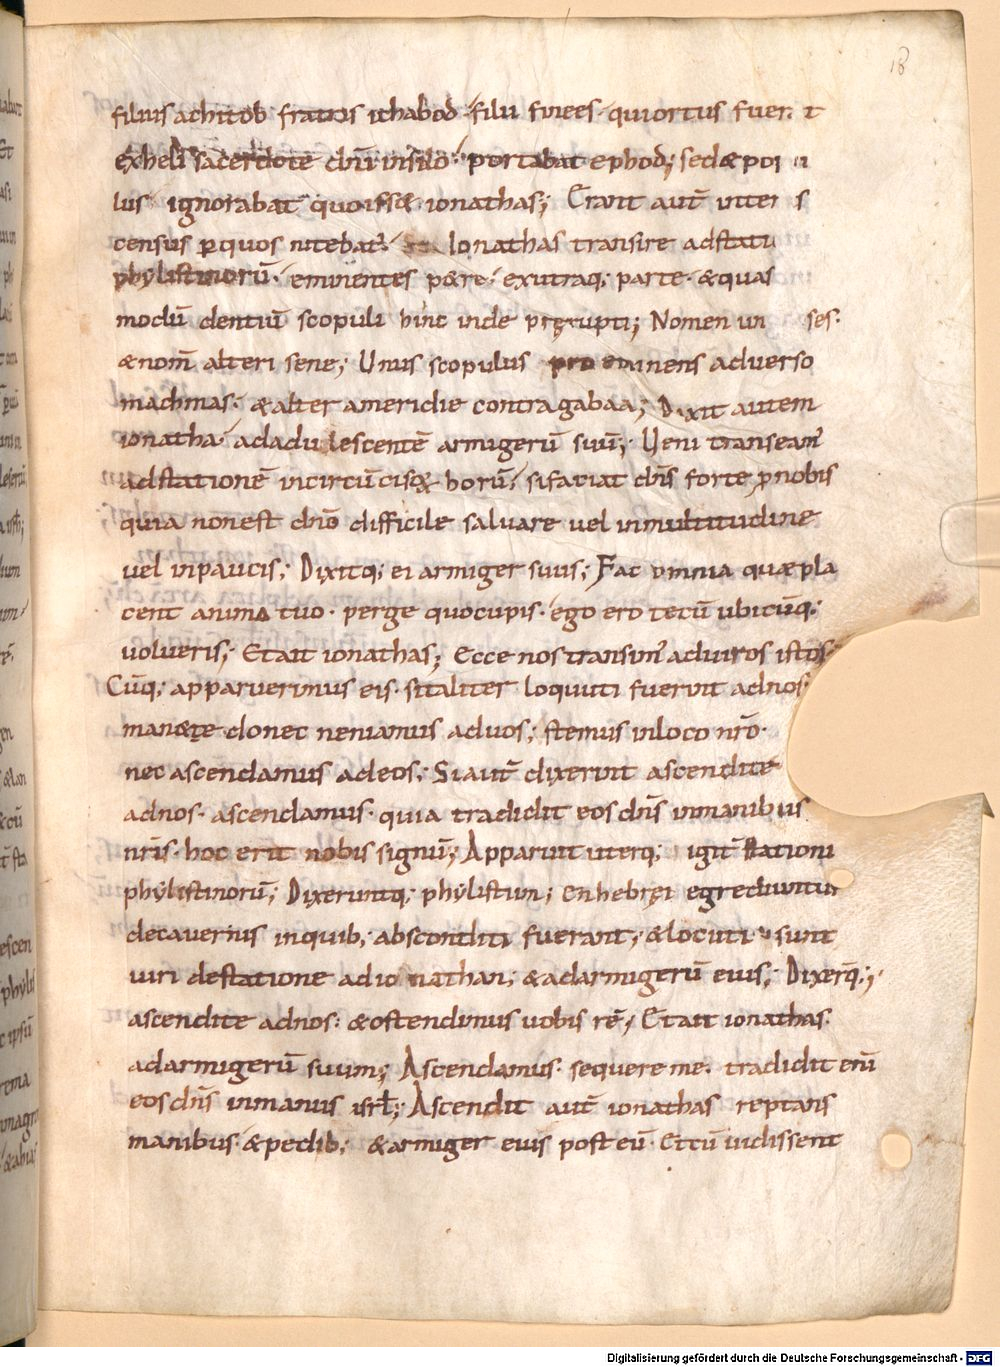 18
filius achitob fratris ichabod · filii finees · qui ortus fuer t
ex heli sacerdote dnī in silo · portabat ephod; sed & po
lus ignorabat quo iss& ionathas; Erant aut̄ inter s
census ꝑ quos nitebat᷑ Ionathas transire ad statı
phylistinorū · eminentes p&re · ex utraq; parte · & quas
modū dentiū scopuli hinc inde pręrupti; Nomen un ses·
& nom̄ alteri sene; Unus scopulus pro eminens adverso
machmas · & alter a meridie contra gabaa; Dixit autem
ionatha· ad adulescentē armigerū suū; Ueni transeam᷒
ad stationē incircūcisoꝝ horū; si faciat dn̄s forte ꝓ nobis
quia non est dnō difficile saluare vel in multitudine
vel in paucis; Dixitq; ei armiger suus; Fac omnia quæ pla
cent animo tuo · perge quo cupis · ego ero tecū ubicūq;
volueris; Et ait ionathas; Ecce nos transim᷒ ad viros istos
Cūq; apparuerimus eis · si taliter loquuti fuerint ad nos
man&ę donec ueniamus ad vos; stemus in loco nrō·
nec ascendamus ad eos; Si aut̄ dixerint ascendite
ad nos · ascendamus · quia tradidit eos dn̄s in manibus
nrīs · hoc erit nobis signū; Apparuit uterq; igit᷑ stationi
phylistinorū; Dixeruntq; phylistiim; en hebręi egrediuntur
de cavernis in quib; absconditi fuerant; & locuti sunt
viri de statione ad ionathan; & ad armigerū eius; Dixerq̄;
ascendite ad nos · & ostendimus vobis rē; Et ait ionathas·
ad armigerū suum; Ascendamus · sequere me · tradidit enī
eos dn̄s in manus isrł; Ascendit aut̄ ionathas reptans
manibus & pedib; & armiger eius post eū · Et cū vidissent
Digitalisierung gefördert durch die Deutsche Forschungsgemeinschaft - DFG